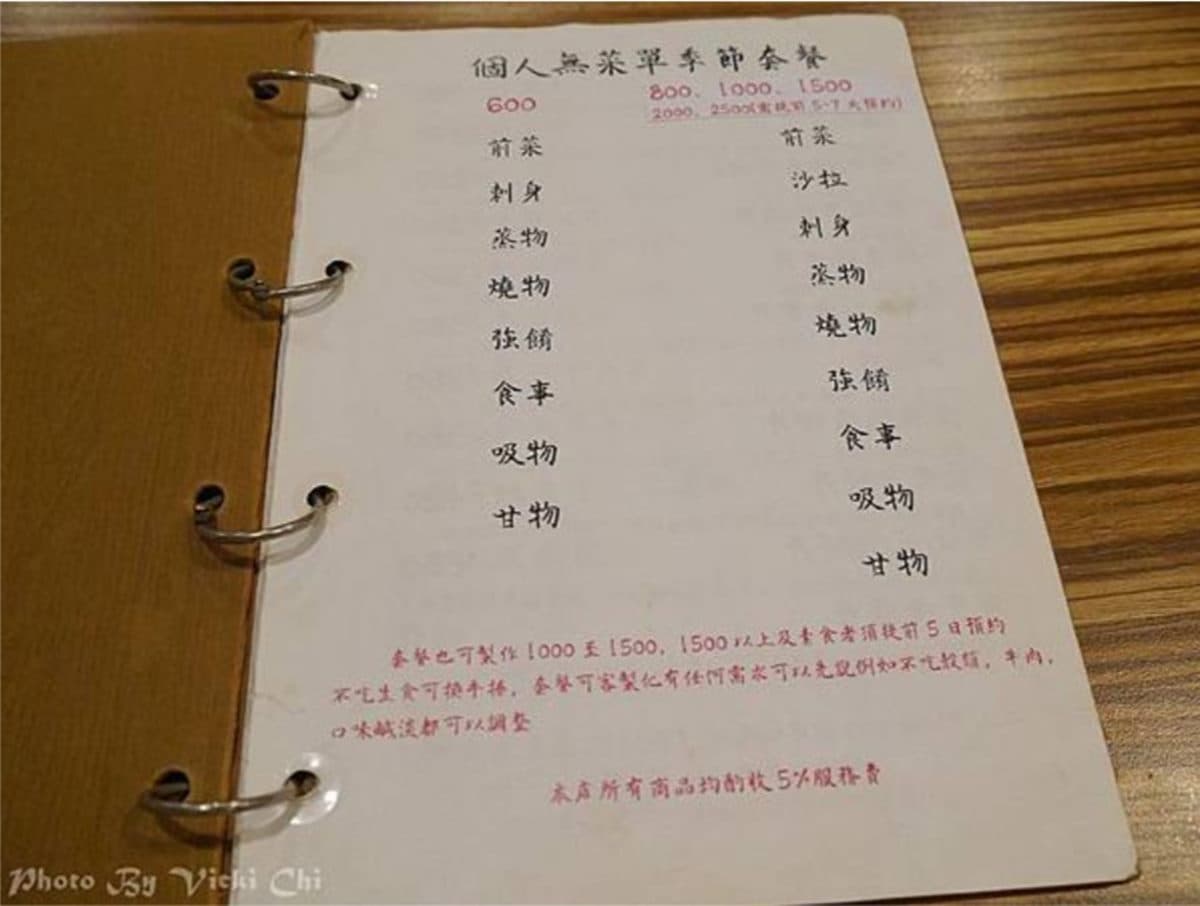 個人無菜單季節套餐
600
800、1000、1500
2000、2500(需提前5-7天預約)
前菜
刺身
蒸物
燒物
強餚
食事
吸物
甘物
前菜
沙拉
刺身
蒸物
燒物
強餚
食事
吸物
甘物
套餐也可製作1000至1500，1500以上及素食者須提前5日預約
不吃生食可換手捲，套餐可客製化有任何需求可以先說例如不吃穀類，牛肉，
口味鹹淡都可以調整
本店所有商品均酌收5%服務費
Photo By Vicki Chi